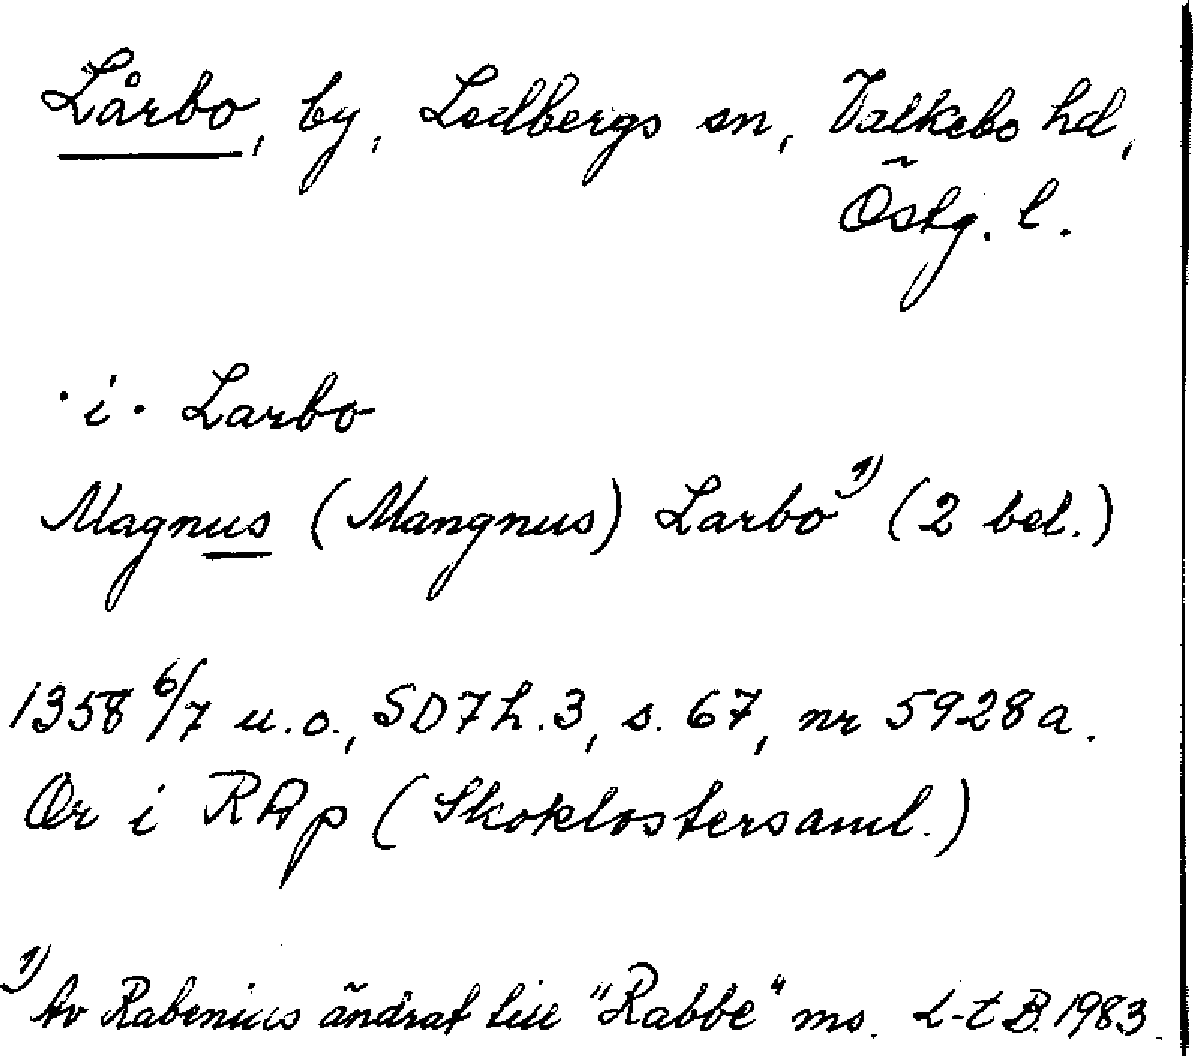 Lårbo, by, Ledbergs sn, Valkebo hd,
Östg. l.
· i · Larbo
Magnus (Mangnus) Larbo 1) (2 bel.)
1358 6/7 u.o., SD7h.3, s. 67, nr 5928a.
Or i RAp (Skoklostersaml.)
1) Av Rabenius ändrat till "Rabbe" ms. L-t B. 1983.